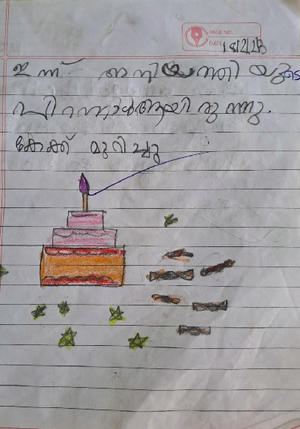 PAGE NO.
DATE
18/2/23
ഇന്ന് അനിയത്തിയുടെ
പിറന്നാൾആയിരുന്നു.
കേക്ക് മുറിച്ചു